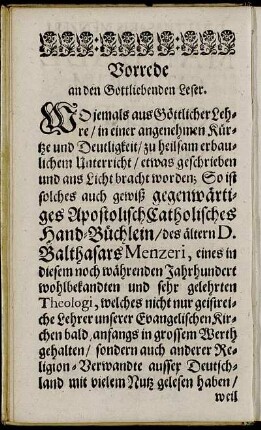 Vorrede
an den Gottliebenden Leser.
WO jemals aus Göttlicher Leh-
re / in einer angenehmen Kür-
tze und Deutligkeit / zu heilsam erbau-
lichem Unterricht / etwas geschrieben
und ans Licht bracht worden; So ist
solches auch gewiß gegenwärti-
ges Apostolisch Catholisches
Hand-Büchlein / des ältern D.
Balthasars Menzeri, eines in
diesem noch währenden Jahrhundert
wohlbekandten und sehr gelehrten
Theologi, welches nicht nur geistrei-
che Lehrer unserer Evangelischen Kir-
chen bald anfangs in grossem Werth
gehalten / sondern auch anderer Re-
ligion-Verwandte ausser Deutsch-
land mit vielem Nutz gelesen haben /
weil